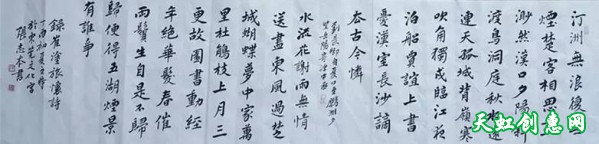 汀洲無浪復無
煙楚客相思益
渺然漢口夕陽斜
渡鳥洞庭秋水遠
連天孤城背嶺寒
吹角獨戍臨江夜
泊船賈誼上書
憂漢室長沙謫
去古今憐
劉長卿自夏口至鸚鵡洲夕
望岳陽寄源中丞
水流花謝兩無情
送盡東風過楚
城蝴蝶夢中家萬
里杜鵑枝上月三
更故園書動經
年絕華髮春催
兩鬢生自是不歸
歸便得五湖煙景
有誰爭
錄崔塗旅懷詩
丁酉初夏
張志本書
天虹创意网